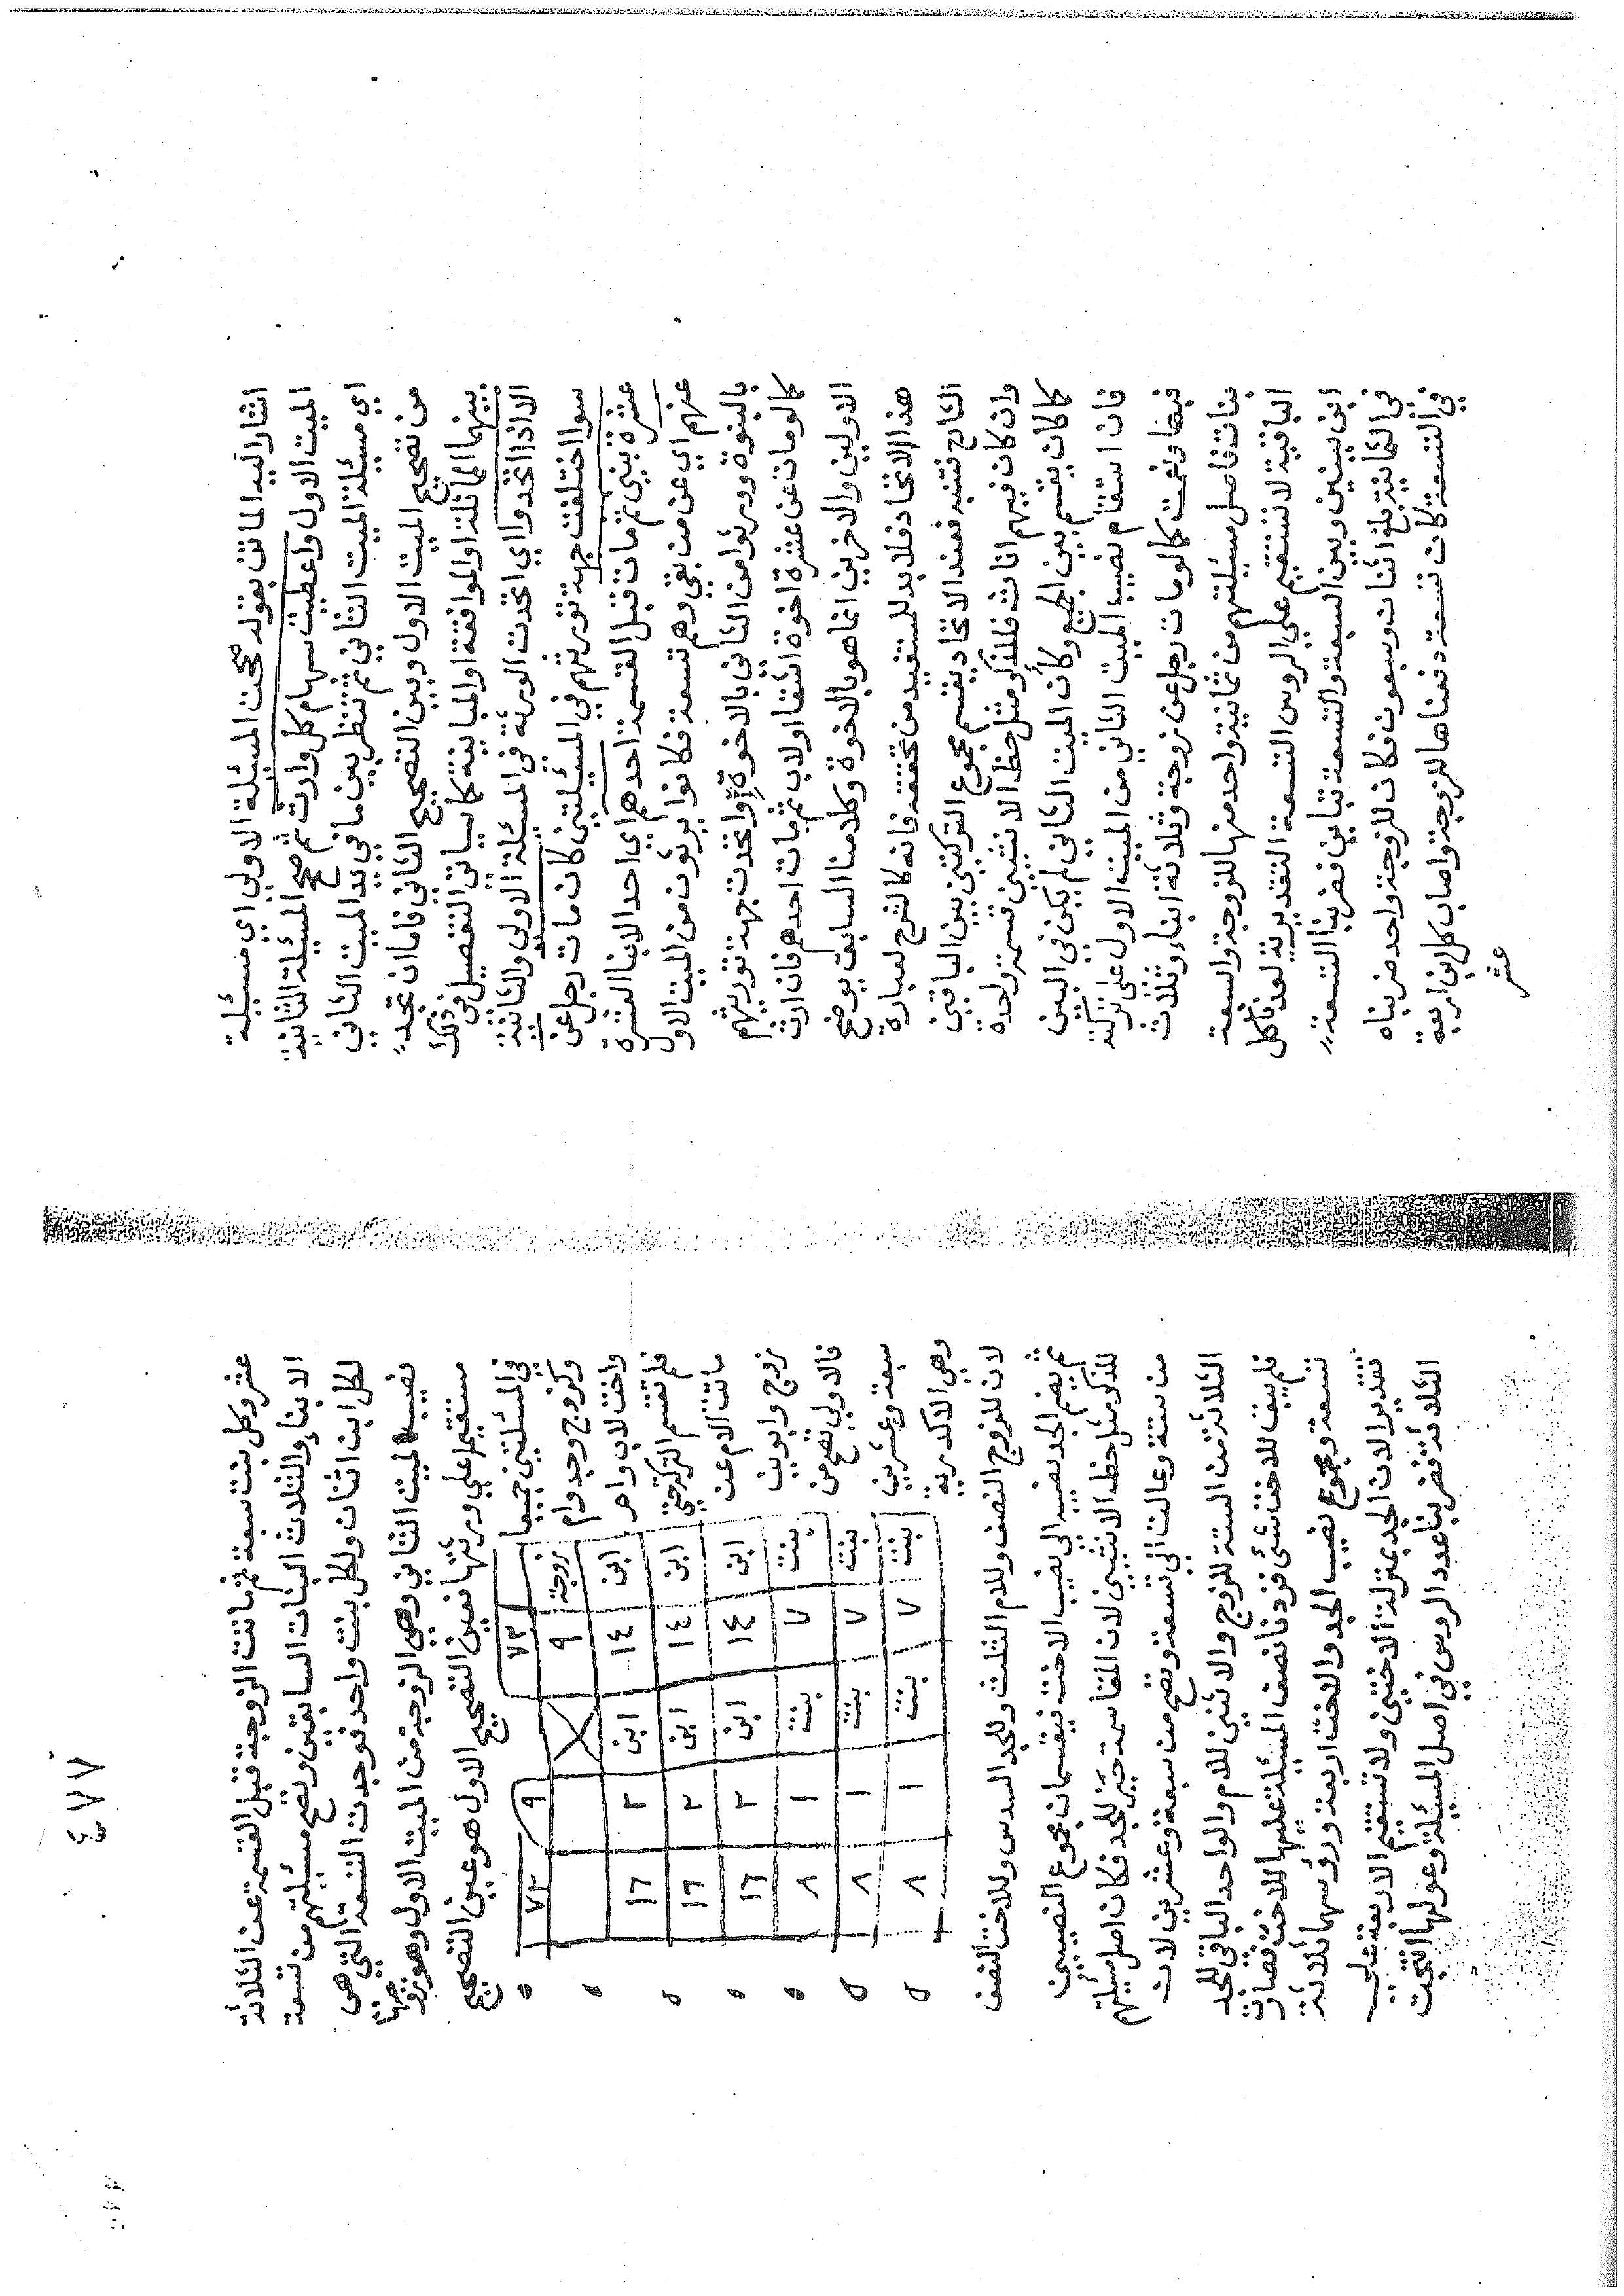 اشار اليه الماتن بقوله صححت المسئلة الاولى اي مسئلة
الميت الاول واعطيت سهام كل وارث ثم صحح المسئلة الثانية
اي مسئلة الميت الثاني ثم تنظر بين ما في يد الميت الثاني
من تصحيح الميت الاول وبين التصحيح الثاني فاما ان تجد
بينهما المماثلة او الموافقة او المباينة كما سياتي التفصيل في ذلك
الا اذا اتحدوا اي اتحدت الورثة في المسئلة الاولى والثانية
سوا اختلفت جهة توريثهم في المسئلتين كان مات رجل عن
عشرة بنين ثم مات قبل القسمة احدهم اي احد الابنا العشرة
عنهم اي عن من بقي وهم تسعة فكانوا يرثون من الميت الاول
بالبنوة وورثوا من الثاني بالاخوة او اتحدت جهة توريثهم
كما لو مات عن عشرة اخوة اشقا او لاب ثم مات احدهم فان ارث
الاولين والاخرين انما هو بالاخوة وكلامنا السابق يوضح
هذا الاتحاد فلا بد للمستفيد من تحققه فانه كالشرح لعبارة
الشارح فتنبه فعند الاتحاد يقسم مجموع التركتين بين الباقين
وان كان فيهم اناث فللذكر مثل حظ الانثيين قسمة واحدة
كما كان يقسم بين الجميع وكأن الميت الثاني لم يكن في البين
فان استقام نصيب الميت الثاني من الميت الاول على تركته
فبها ونعمت كما لو مات رجل عن زوجة وثلاثة ابناء وثلاث
بنات فاصل مسئلتهم من ثمانية واحد منها للزوجة والسبعة
الباقية لا تستقيم على الروس التسعة التقديرية لعدنا كل
ابن ببنتين وبين السبعة والتسعة تباين فضربنا التسعة
في الثمانية بلغ اثنان وسبعون فكان للزوجة واحد ضربناه
في التسعة كانت تسعة دفعناها للزوجة واصاب كل ابن اربعة
عشر
٤٧٧
عشر وكل بنت سبعة ثم ماتت الزوجة قبل القسمة عن الثلاثة
الابناء والثلاث البنات السابقين وتصح مسئلتهم من تسعة
لكل ابن اثنان ولكل بنت واحد فوجدت التسعة التي هي
نصيب الميت الثاني وهي الزوجة من الميت الاول وهو زوجها
مستقيما على ورثتها فعين التصحيح الاول هو عين التصحيح
في المسئلتين جميعا
وكزوج وجد وام
واخت لاب واحر
فلم تقسم التركة حتى
ماتت الام عن
زوج وابوين
فالاولى تصح من
سبعة وعشرين
وهي الاكدرية
٧٢ ٩ ٧٢
زوجة ٩
ابن ١٤ ابن ٢ ١٦
ابن ١٤ ابن ٢ ١٦
ابن ١٤ ابن ٢ ١٦
بنت ٧ بنت ١ ٨
بنت ٧ بنت ١ ٨
بنت ٧ بنت ١ ٨
لان للزوج النصف وللام الثلث وللجد السدس وللاخت النصف
ثم يضم الجد نصيبه الى نصيب الاخت فيقسمان مجموع النصيبين
للذكر مثل حظ الانثيين لان المقاسمة خير للجد فكان اصل مسئلتهم
من ستة وعالت الى تسعة وتصح من سبعة وعشرين لان
الثلاثة من الستة للزوج والاثنين للام والواحد الباقي للجد
فلم يبق للاخت شئ فزدنا نصف المسئلة عليها للاخت فصارت
تسعة ومجموع نصيب الجد والاخت اربعة ورؤسهما ثلاثة
تقدير الان الجد بمنزلة الاختين ولا تستقيم الاربعة على
الثلاثة فضربنا عدد الروس في اصل المسئلة وعولها اتحت